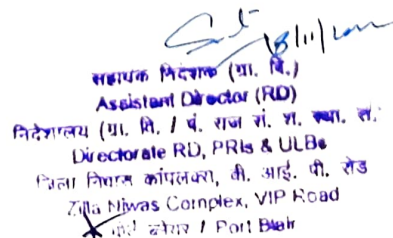 18/11/2022
सहायक निदेशक (ग्रा. वि.)
Assistant Director (RD)
निदेशालय (ग्रा. वि. / पं. राज सं. श. स्था. स.
Directorate RD, PRIs & ULBs
जिला निवास कांपलेक्स, वी. आई. पी. रोड
Zilla Niwas Complex, VIP Road
पोर्ट ब्लेयर / Port Blair